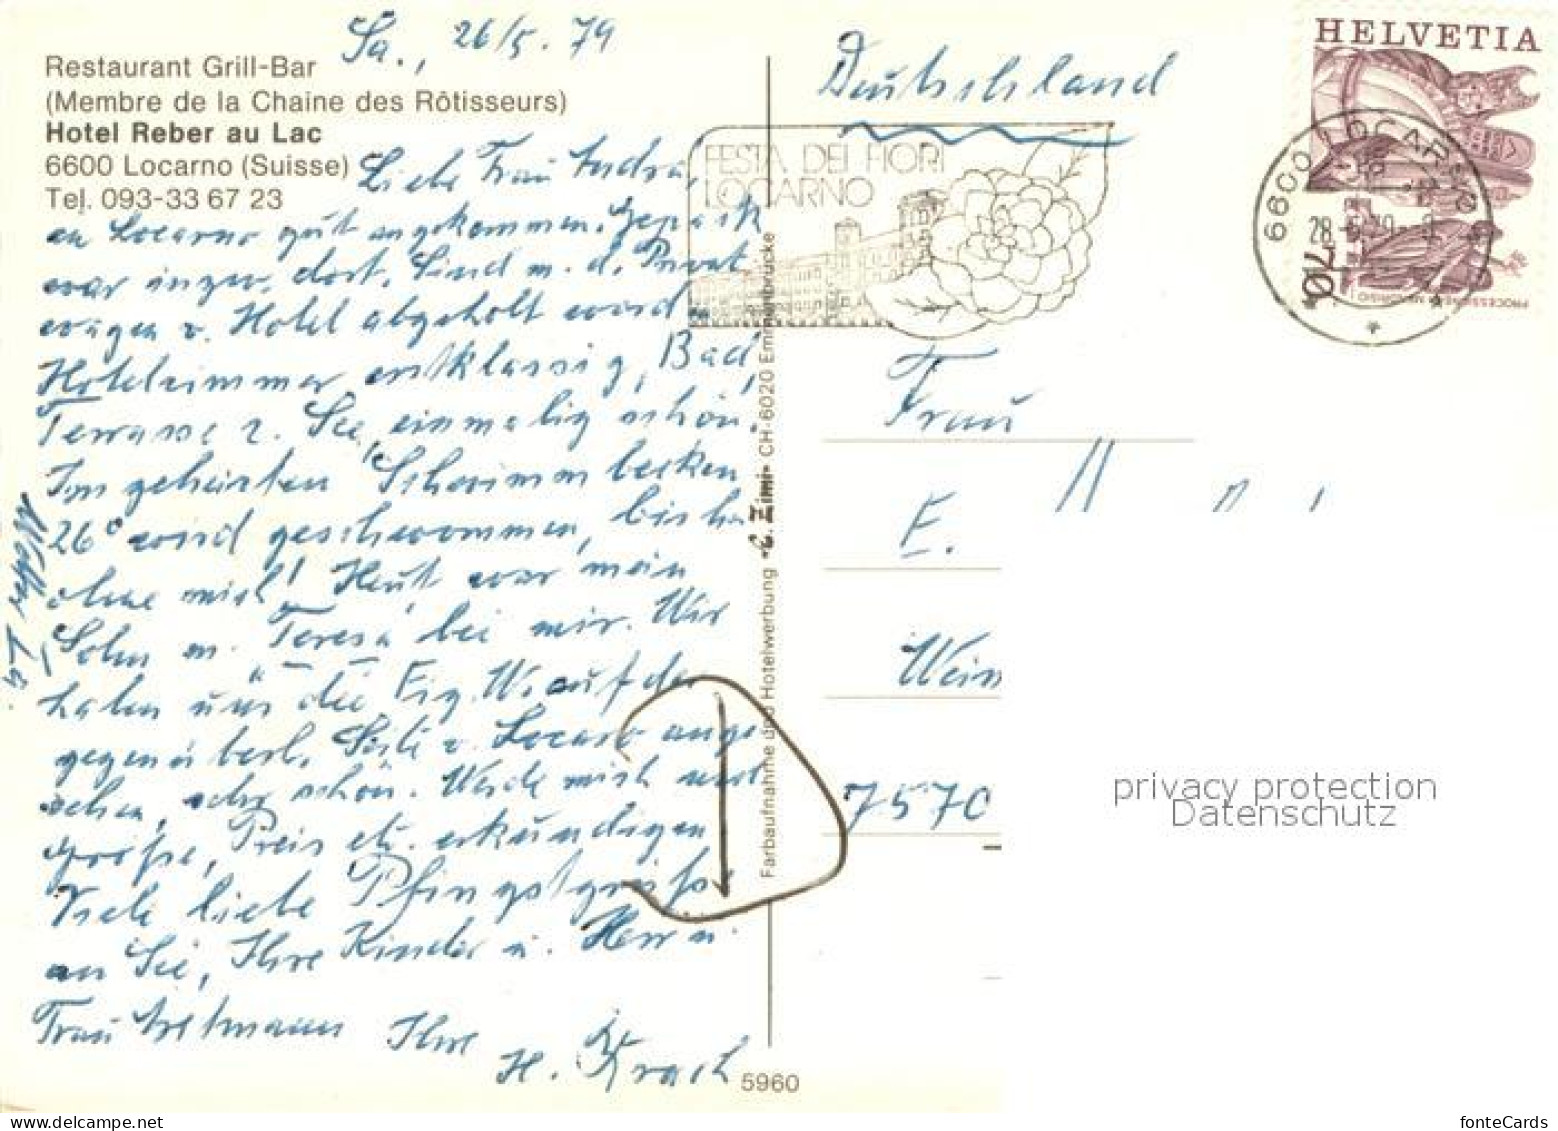 Sa., 26/5. 79
Restaurant Grill-Bar
(Membre de la Chaine des Rôtisseurs)
Hotel Reber au Lac
6600 Locarno (Suisse)
Tel. 093-33 67 23
Liebe Frau
in Locarno gut angekommen. Gepäck
war inzw. dort. Sind m. d. Privat
wagen v. Hotel abgeholt word.
Hotelzimmer erstklassig, Bad,
Terrasse z. See, einmalig schön.
Im geheizten Schwimmbecken
26° wird geschwommen, bisher
ohne mich! Heut war mein
Sohn m. "Teresa" bei mir. Wir
haben uns die Eig. W. auf der
gegenüberl. Seite v. Locarno ange
sehen, sehr schön. Werde mich
Größe, Preis etc. erkundigen
Viele liebe Pfingstgrüße
an Sie, Ihre Kinder u. Herr u.
Frau Ihre
H. Krach
Wetter
Deutschland
FESTA DEI FIORI
LOCARNO
HELVETIA
70
6600 LOCARNO
28.5.79
Frau
E.
Wein
7570
Farbaufnahme und Hotelwerbung C. Zimi CH-6020 Emmenbrücke
5960
privacy protection
Datenschutz
www.delcampe.net
fonteCards